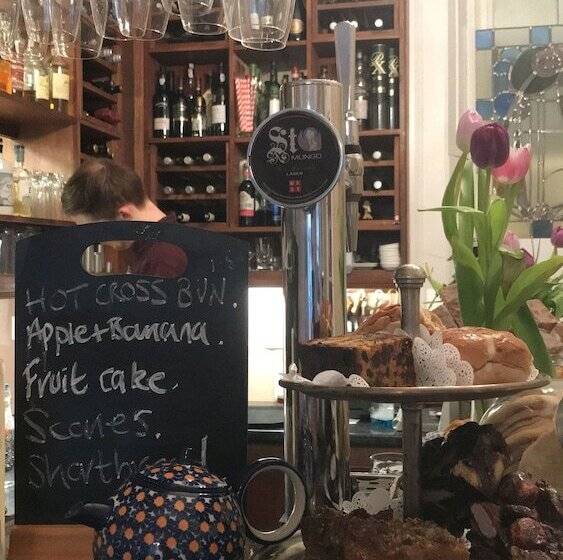 St
MUNGO
LAGER
HOT CROSS BUN.
Apple + Banana.
Fruit cake.
Scones.